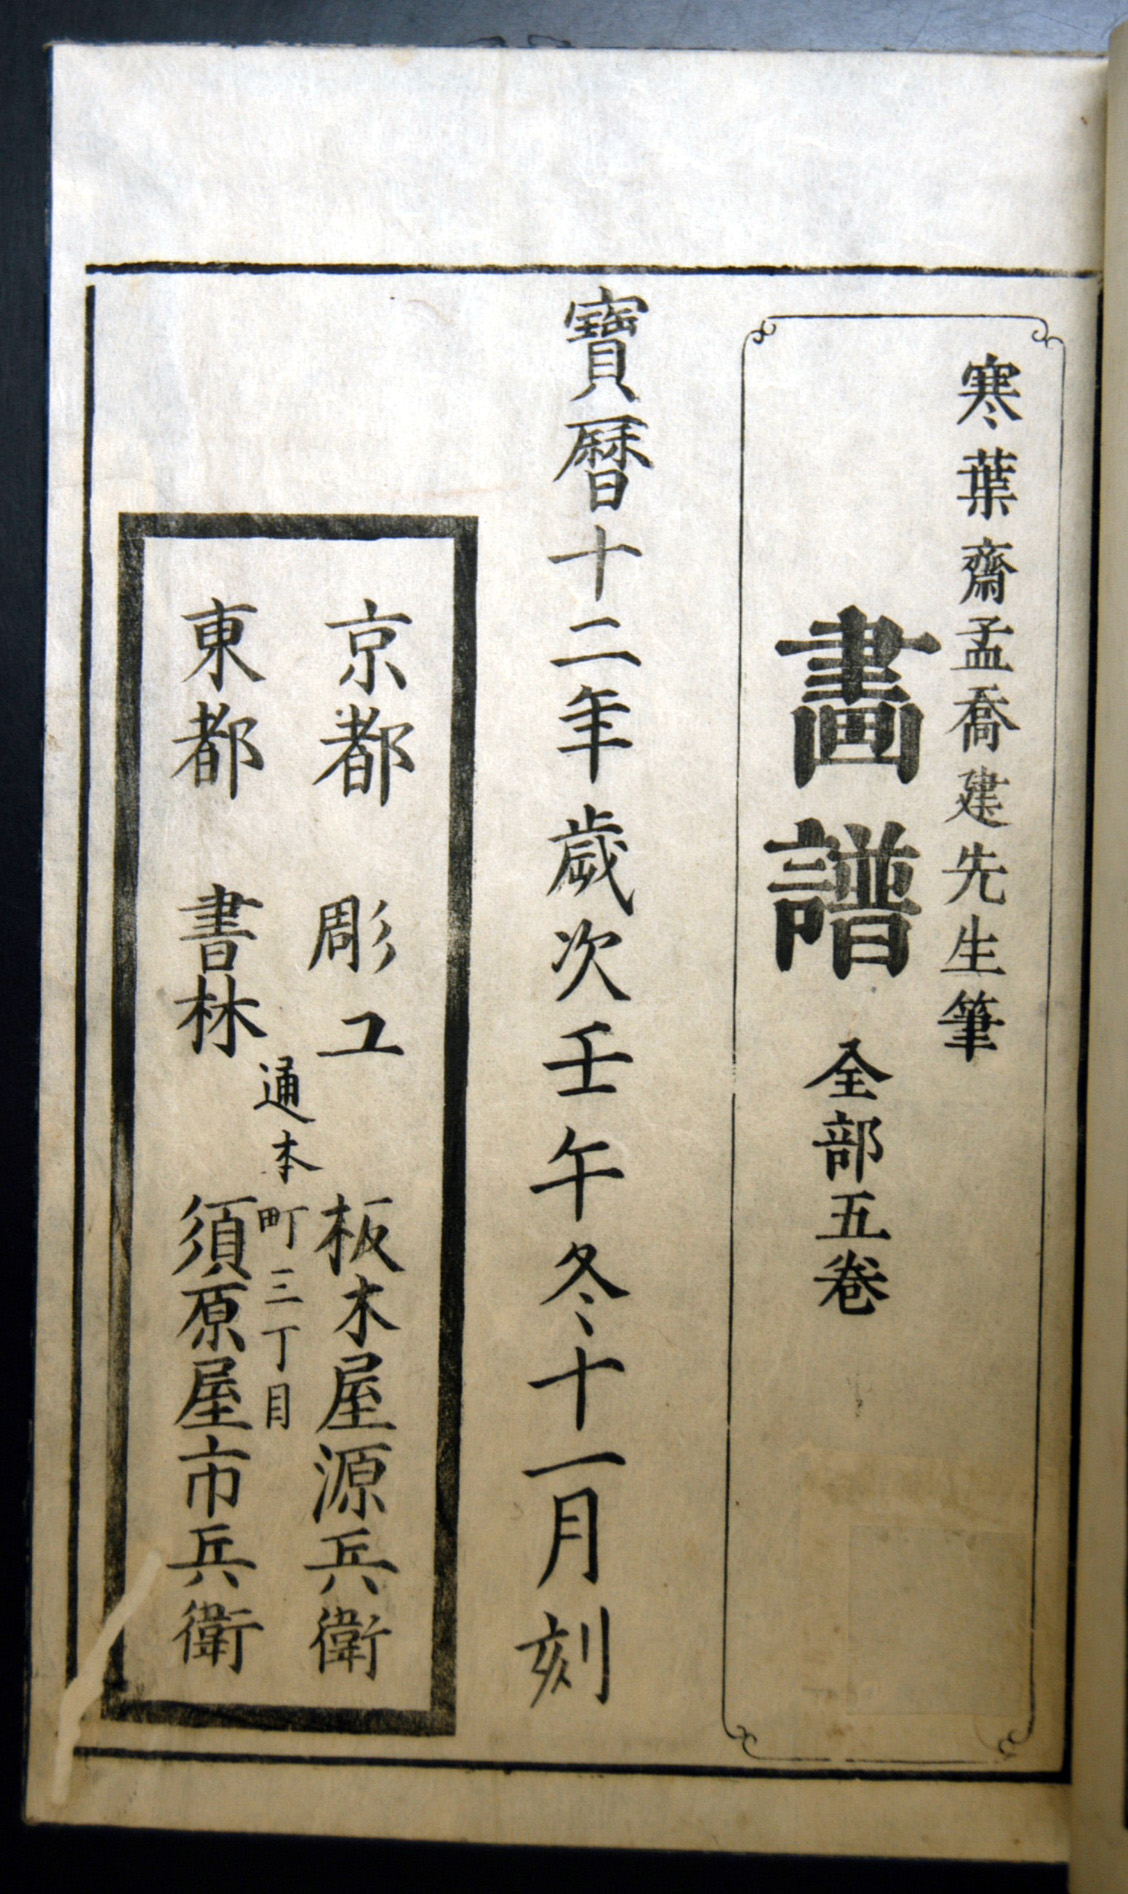 寒葉齋孟喬建先生筆
畫譜 全部五卷
寶曆十二年歲次壬午冬十一月刻
京都 彫工 板木屋源兵衛
通本町三丁目
東都 書林 須原屋市兵衛